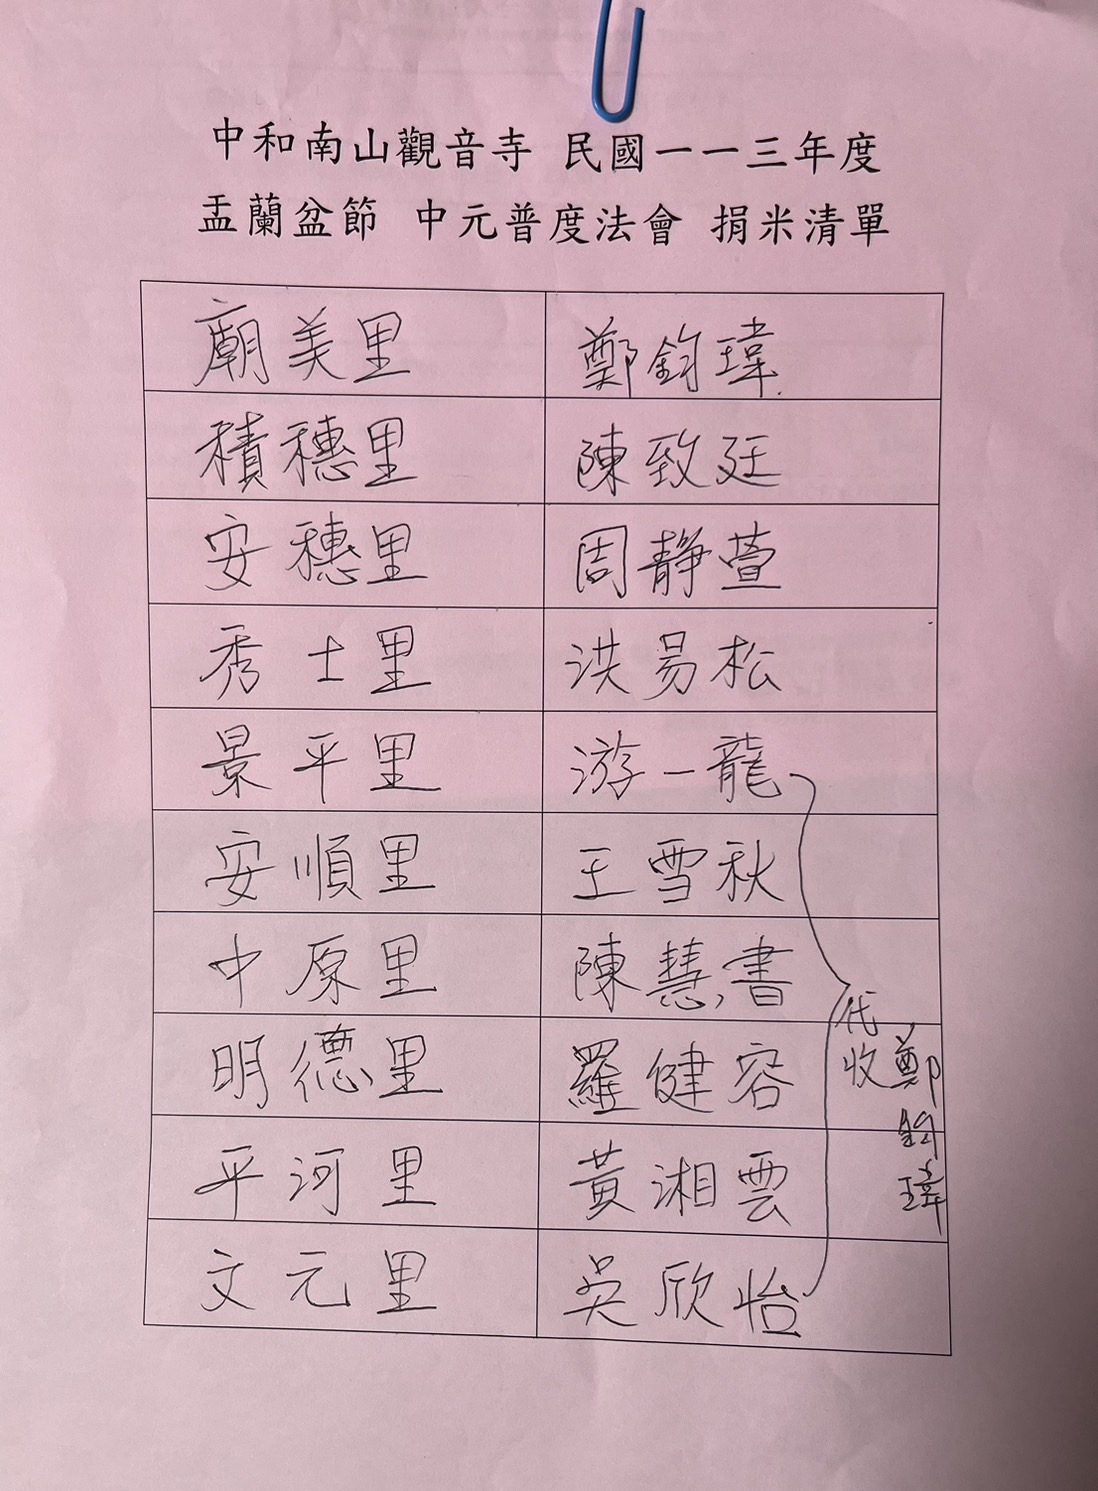 中和南山觀音寺 民國一一三年度
盂蘭盆節 中元普度法會 捐米清單
廟美里 鄭鈞瑋
積穗里 陳致廷
安穗里 周靜萱
秀士里 洪易松
景平里 游一龍
安順里 王雪秋
中原里 陳慧書
明德里 羅健容
平河里 黃湘雲
文元里 吳欣怡
代收
鄭鈞瑋